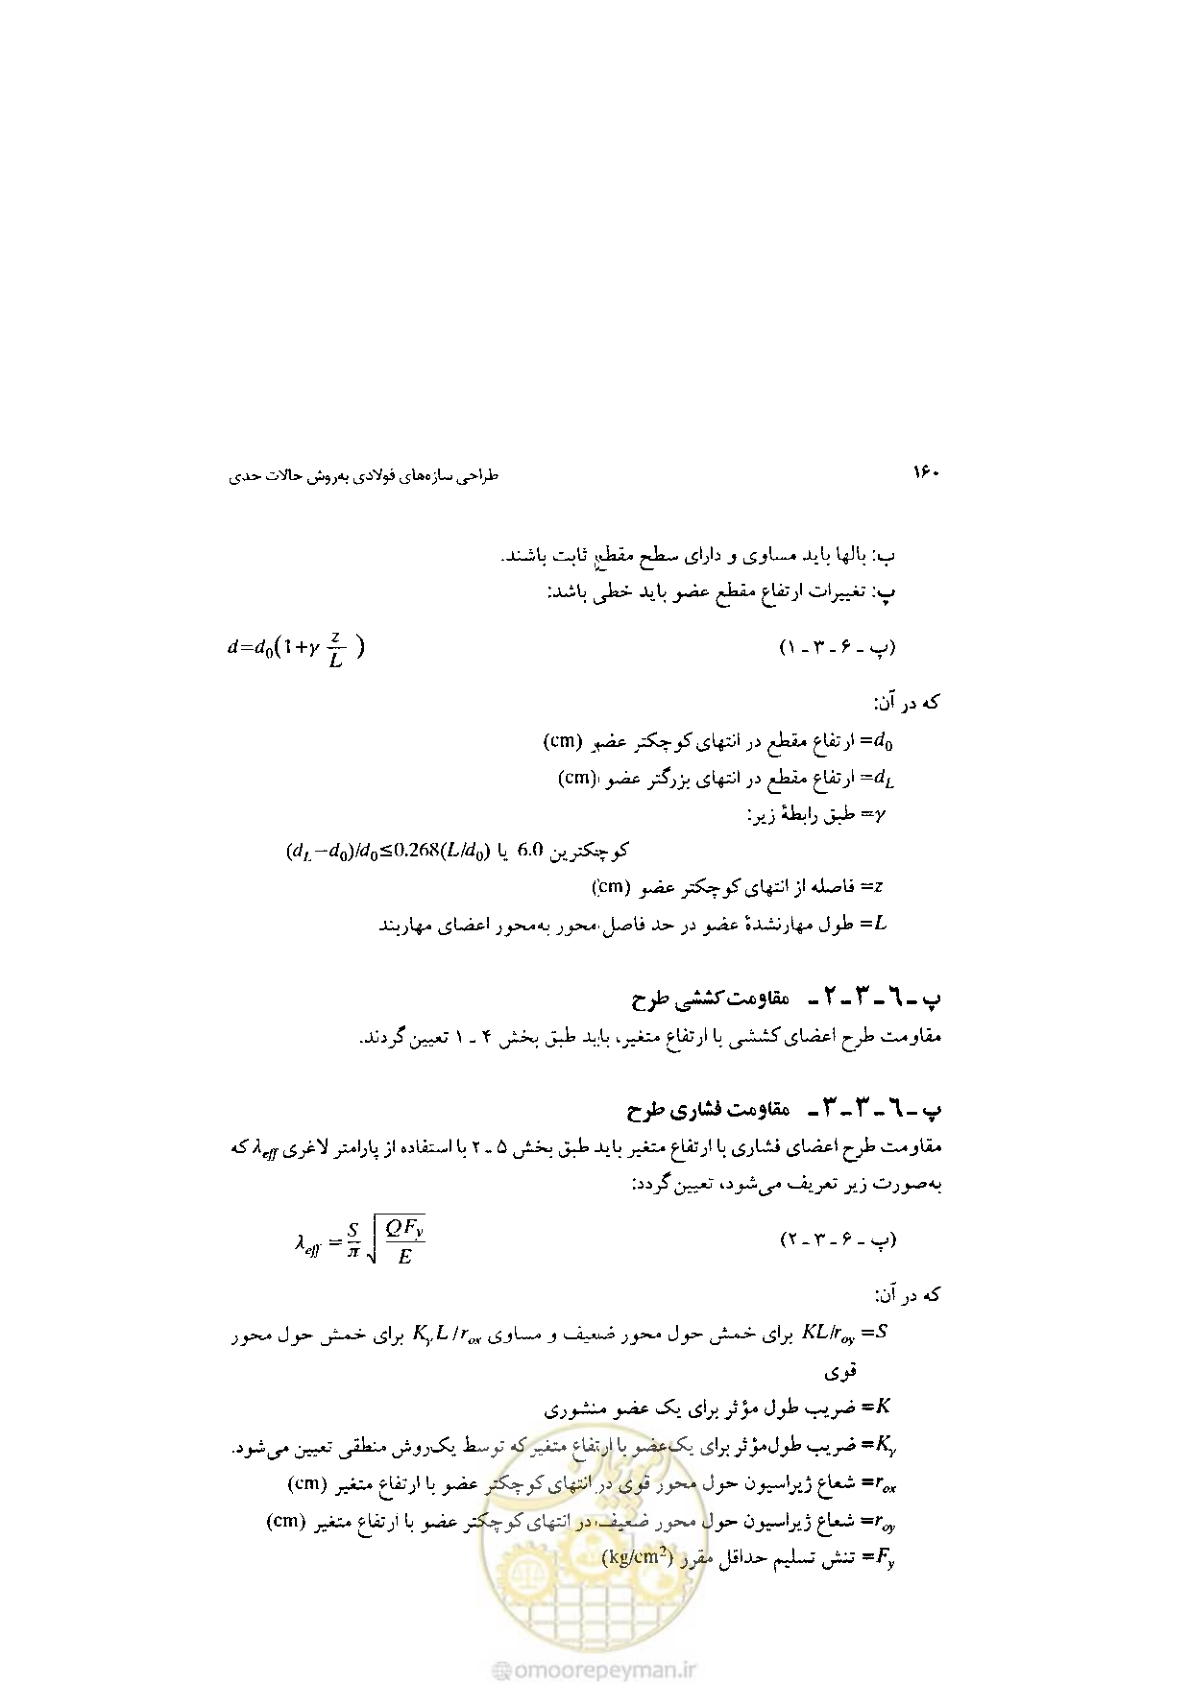 ۱۶۰ طراحی سازه‌های فولادی به‌روش حالات حدی
ب: بالها باید مساوی و دارای سطح مقطع ثابت باشند.
پ: تغییرات ارتفاع مقطع عضو باید خطی باشد:
(پ ـ ۶ ـ ۳ ـ ۱) d=d₀(1+γ z/L)
که در آن:
d₀= ارتفاع مقطع در انتهای کوچکتر عضو (cm)
d_L= ارتفاع مقطع در انتهای بزرگتر عضو (cm)
γ= طبق رابطهٔ زیر:
کوچکترین 6.0 یا (d_L−d₀)/d₀≤0.268(L/d₀)
z= فاصله از انتهای کوچکتر عضو (cm)
L= طول مهارنشدهٔ عضو در حد فاصل محور به‌محور اعضای مهاربند
پ ـ ٦ ـ ۳ ـ ۲ ـ مقاومت کششی طرح
مقاومت طرح اعضای کششی با ارتفاع متغیر، باید طبق بخش ۴ ـ ۱ تعیین گردند.
پ ـ ٦ ـ ۳ ـ ۳ ـ مقاومت فشاری طرح
مقاومت طرح اعضای فشاری با ارتفاع متغیر باید طبق بخش ۵ ـ ۲ با استفاده از پارامتر لاغری λ_eff که
به‌صورت زیر تعریف می‌شود، تعیین گردد:
(پ ـ ۶ ـ ۳ ـ ۲) λ_eff = S/π √(QF_y/E)
که در آن:
S= KL/r_oy برای خمش حول محور ضعیف و مساوی K_γ L/r_ox برای خمش حول محور
قوی
K= ضریب طول مؤثر برای یک عضو منشوری
K_γ= ضریب طول‌مؤثر برای یک‌عضو با ارتفاع متغیر که توسط یک‌روش منطقی تعیین می‌شود.
r_ox= شعاع ژیراسیون حول محور قوی در انتهای کوچکتر عضو با ارتفاع متغیر (cm)
r_oy= شعاع ژیراسیون حول محور ضعیف در انتهای کوچکتر عضو با ارتفاع متغیر (cm)
F_y= تنش تسلیم حداقل مقرر (kg/cm²)
امور پیمان
@omoorepeyman.ir